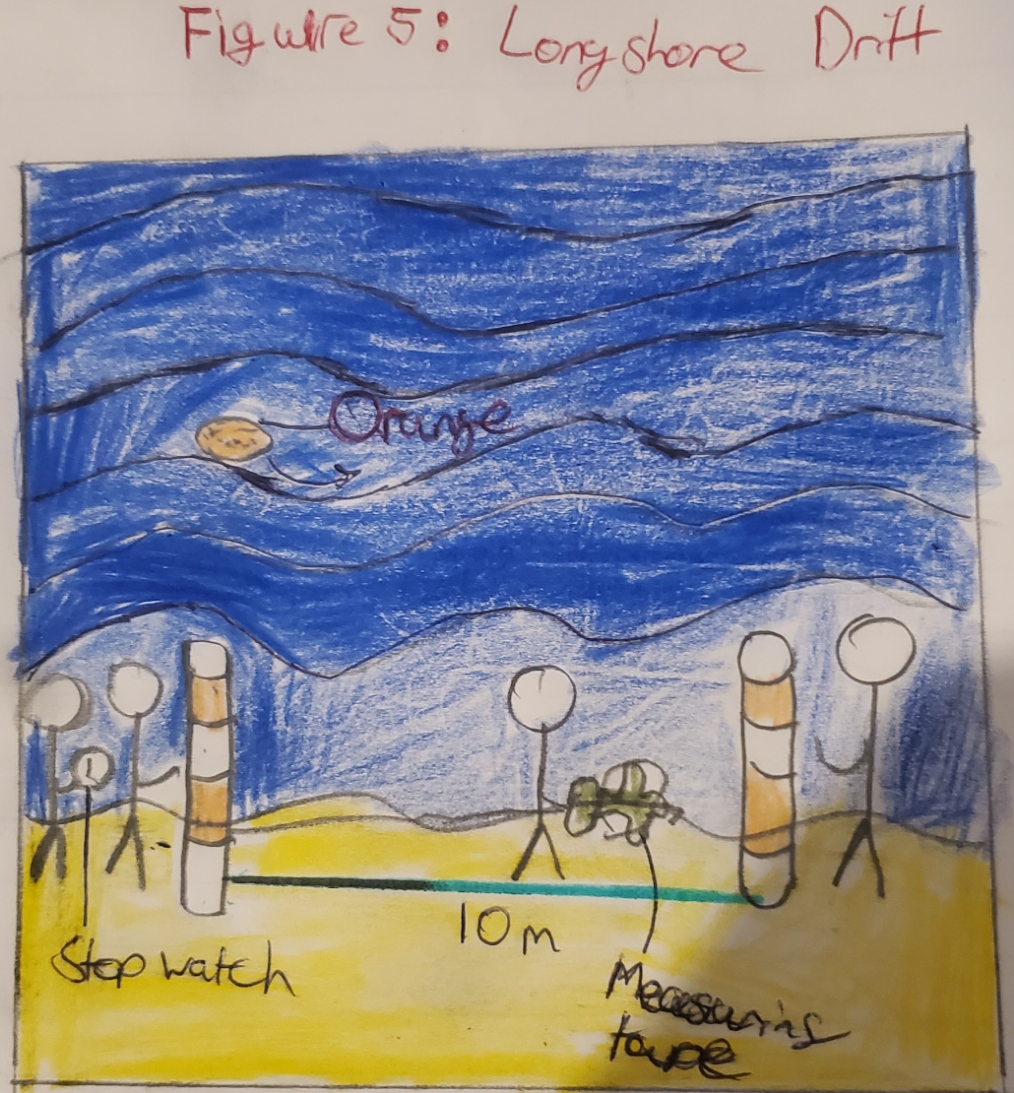 Figure 5: Longshore Drift
Orange
10m
Stop watch
Measuring
tape